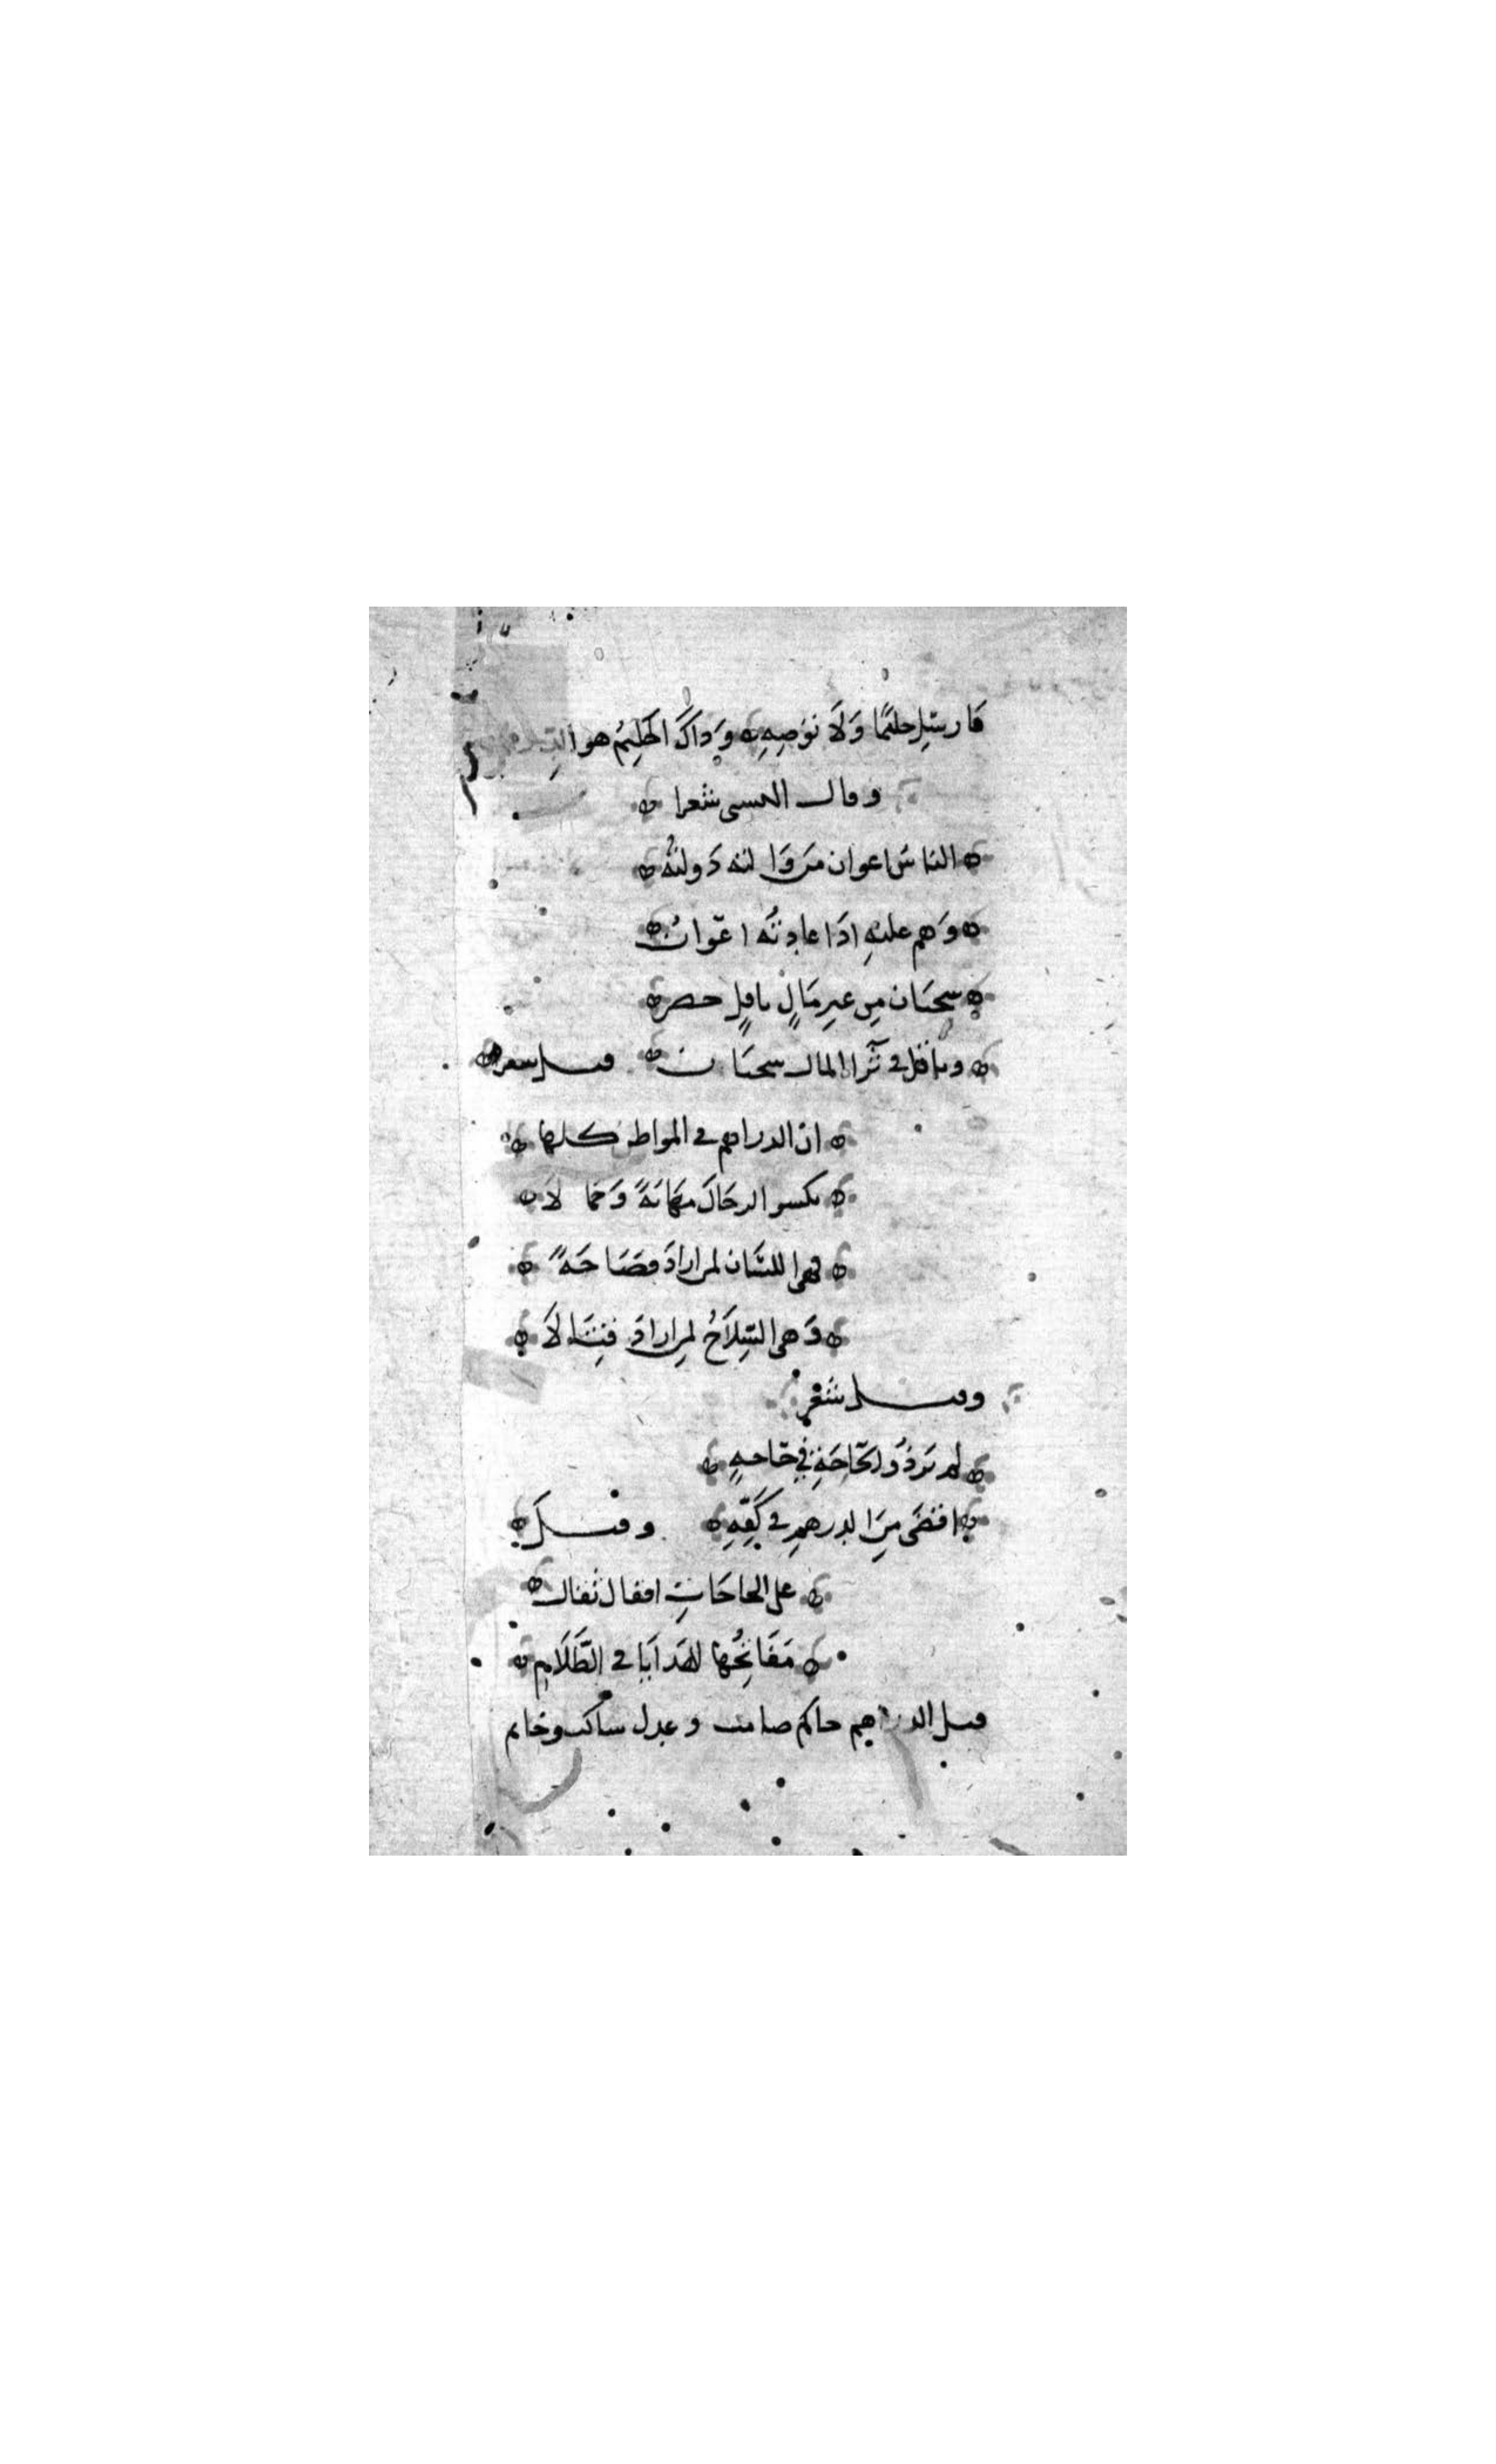 فارسل حليما ولا توصه ه وذاك الحليم هو الدرهم
وقال البستى شعرا ه
ه الناس اعوان من واتته دولته ه
ه وهم عليه اذا عادته اعوان ه
ه سحبان من غير مال باقل حصر ه
ه وباقل فى ثرا المال سحبان ه قيل شعر ه
ه ان الدراهم فى المواطن كلها ه
ه تكسو الرجال مهانة وجمالا ه
ه فهى اللسان لمن اراد فصاحة ه
ه وهى السلاح لمن اراد قتالا ه
وقيل شعر
ه لم ترد ذو الحاجة فى حاجه ه
ه اقضى من الدرهم فى كفه ه وقيل ه
ه على الحاجات اقفال ثقال ه
ه مفاتحها الهدايا فى الظلام ه
قيل الدراهم حاكم صامت وعدل ساكت وخاتم